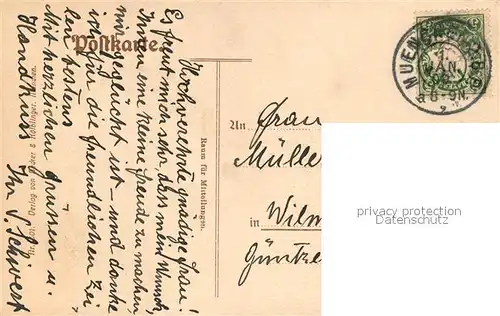 Postkarte.
Hochverehrte gnädige Frau!
Es freut mich sehr, dass mein Wunsch,
Ihnen eine kleine Freude zu machen,
mir geglückt ist – und danke
ich für die freundlichen Zei-
len bestens
Mit herzlichen Grüssen u.
Handkuss
Ihr
Schwert
Raum für Mitteilungen.
MUENCHEN
An Frau
Müller
in Wilm
Güntze
privacy protection
Datenschutz